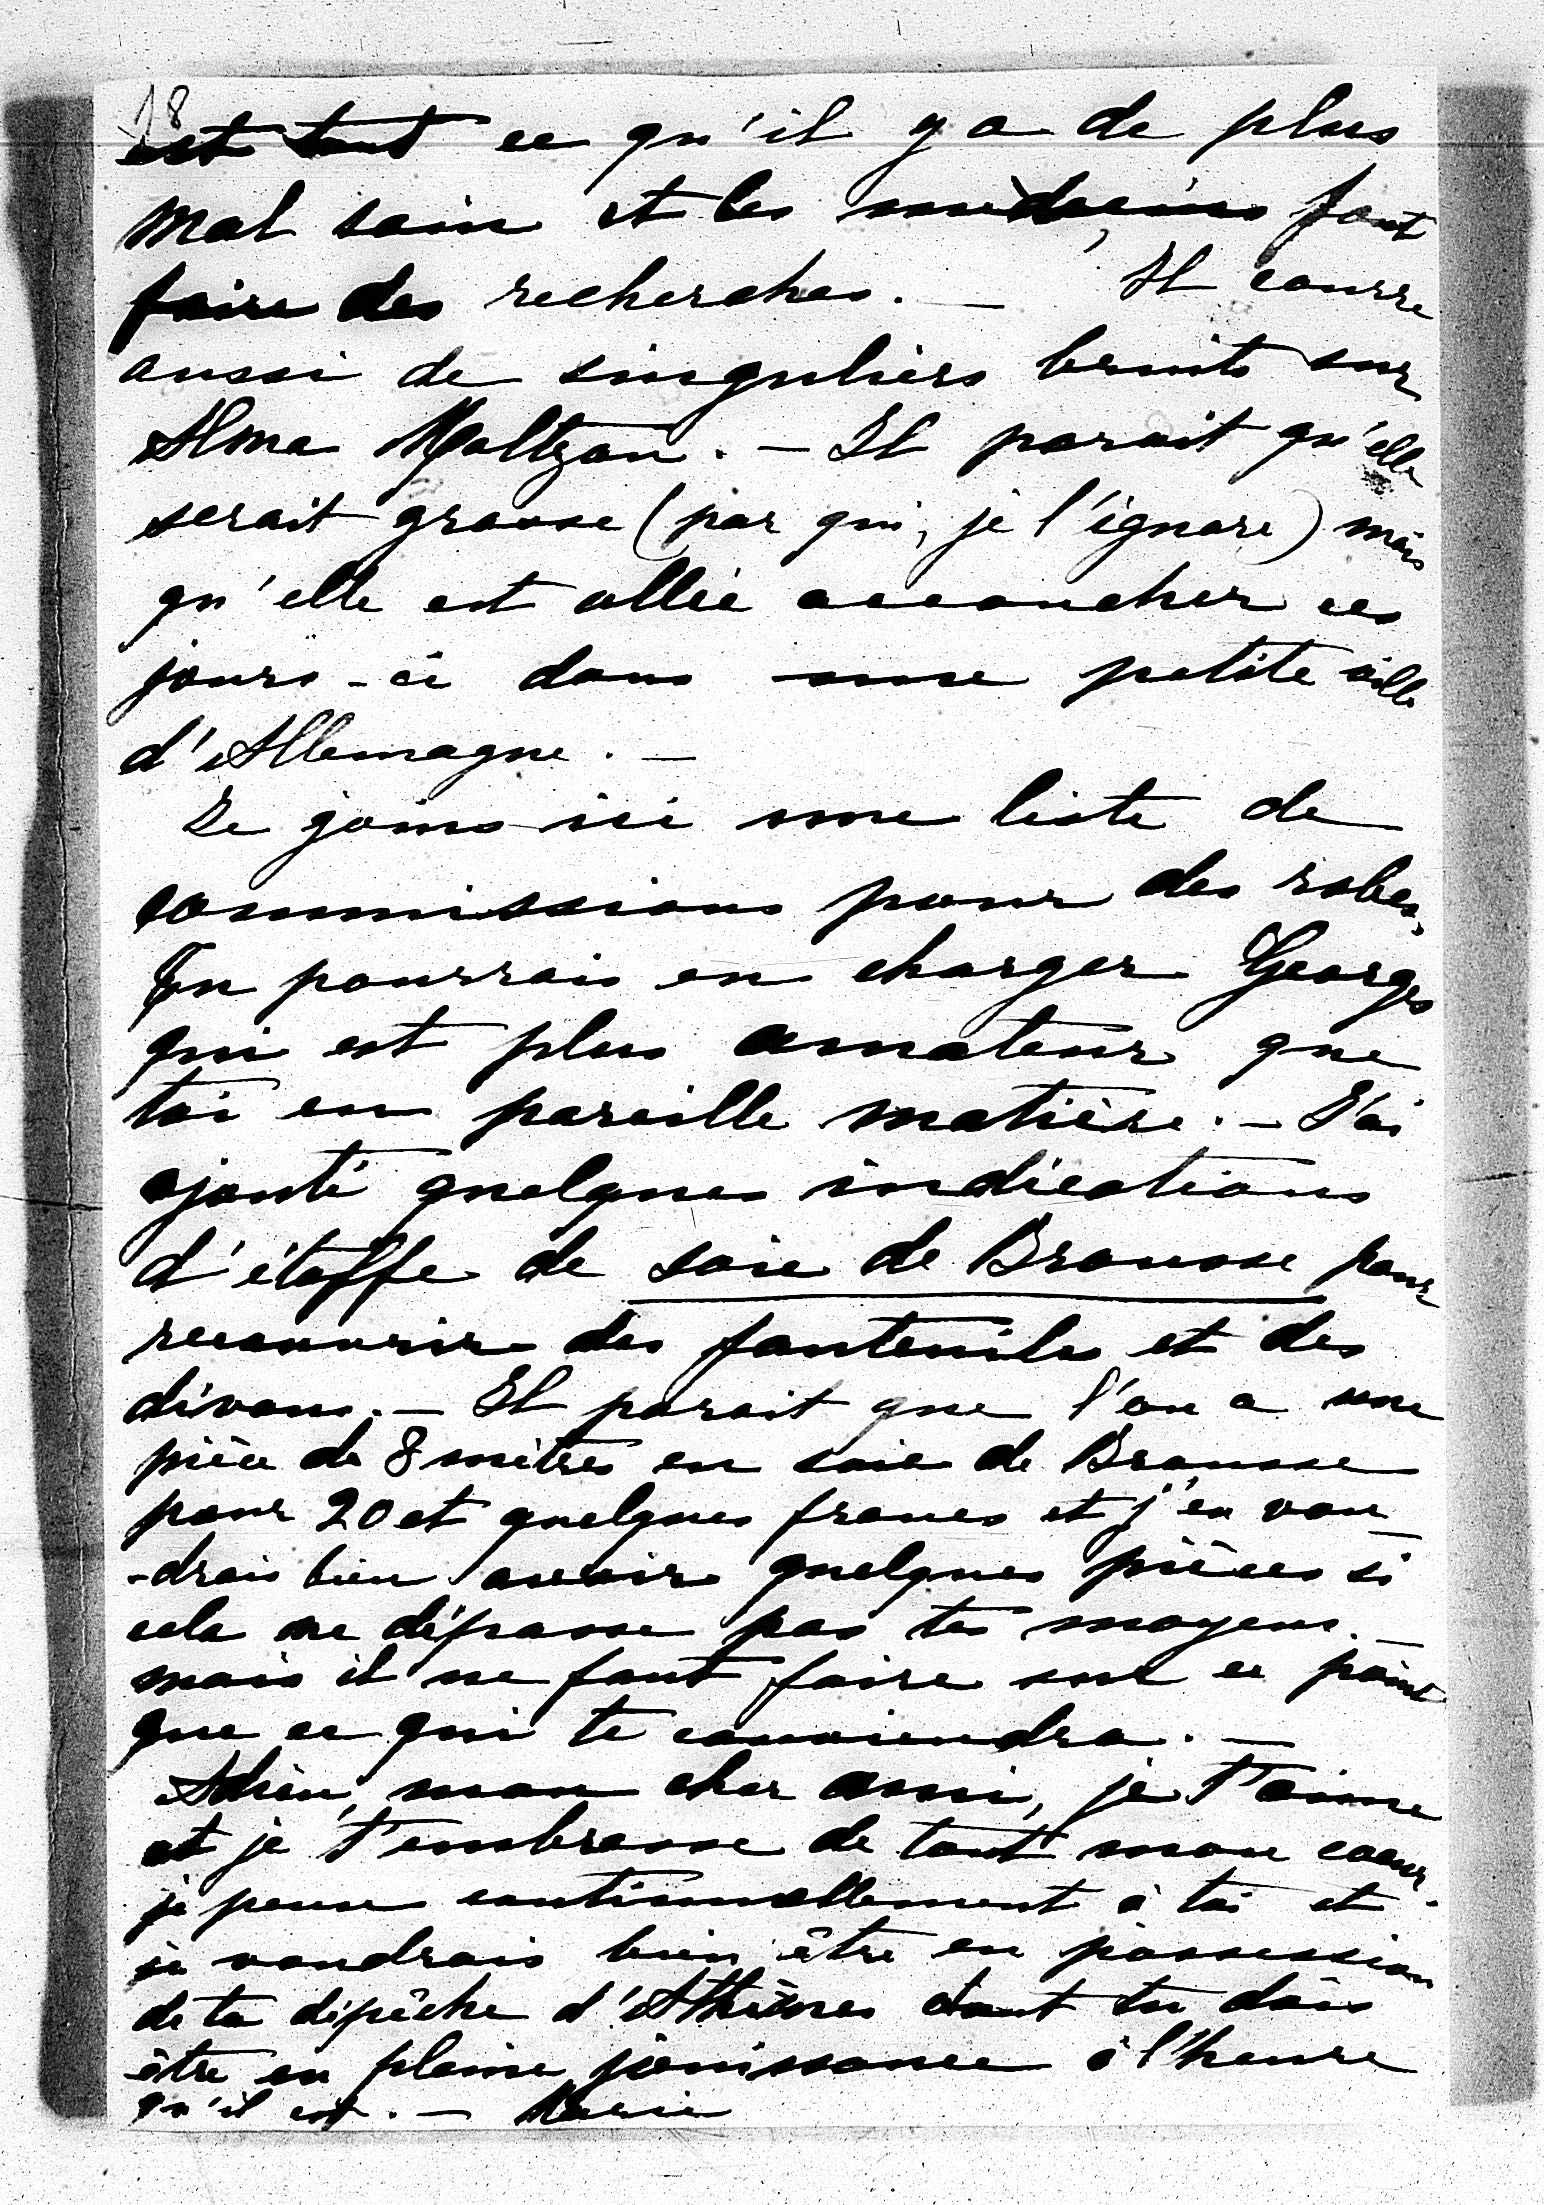 18
est tout ce qu'il y a de plus
mal sain et les médecins font
faire des recherches. — Il courre
aussi de singuliers bruits sur
Alma Maltzan. — Il parait qu'elle
serait grosse (par qui, je l'ignore) mais
qu'elle est allée accoucher ces
jours-ci dans une petite ville
d'Allemagne. —
Je joins ici une liste de
commissions pour des robes,
Tu pourrais en charger Georges
qui est plus amateur que
toi en pareille matière. — J'ai
ajouté quelques indications
d'étoffe de soie de Brousse pour
recouvrir des fauteuils et des
divans. — Il parait que l'on a une
pièce de 8 mètres en soie de Brousse
pour 20 et quelques francs et j'en vou-
-drais bien avoir quelques pièces si
cela ne dépasse pas tes moyens. —
mais il ne faut faire sur ce point
que ce qui te conviendra. —
Adieu, mon cher ami, je t'aime
et je t'embrasse de tout mon coeur.
je pense continuellement à toi et
je voudrais bien être en possession
de ta dépêche d'Athènes dont tu dois
être en pleine jouissance à l'heure
qu'il est. — Marie